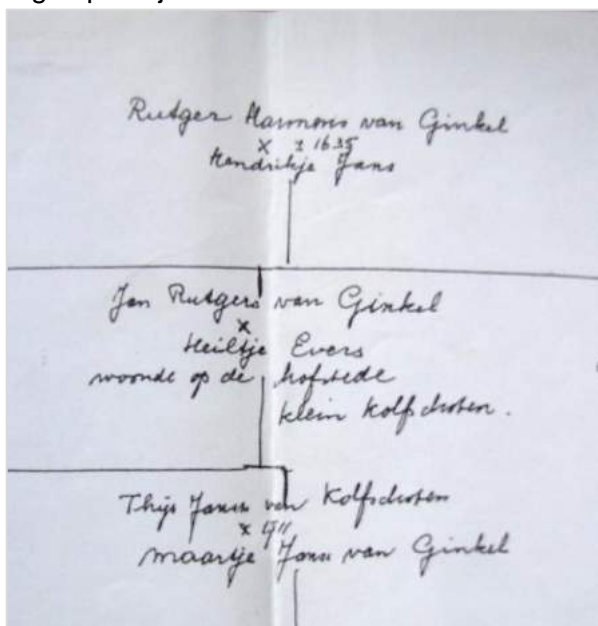 Rutger Harmens van Ginkel
x ± 1635
Hendrikje Jans
Jan Rutgers van Ginkel
x
Heiltje Evers
woonde op de hofstede
klein Kolfschoten.
Thijs Jansz van Kolfschoten
x 1711
Maartje Jans van Ginkel